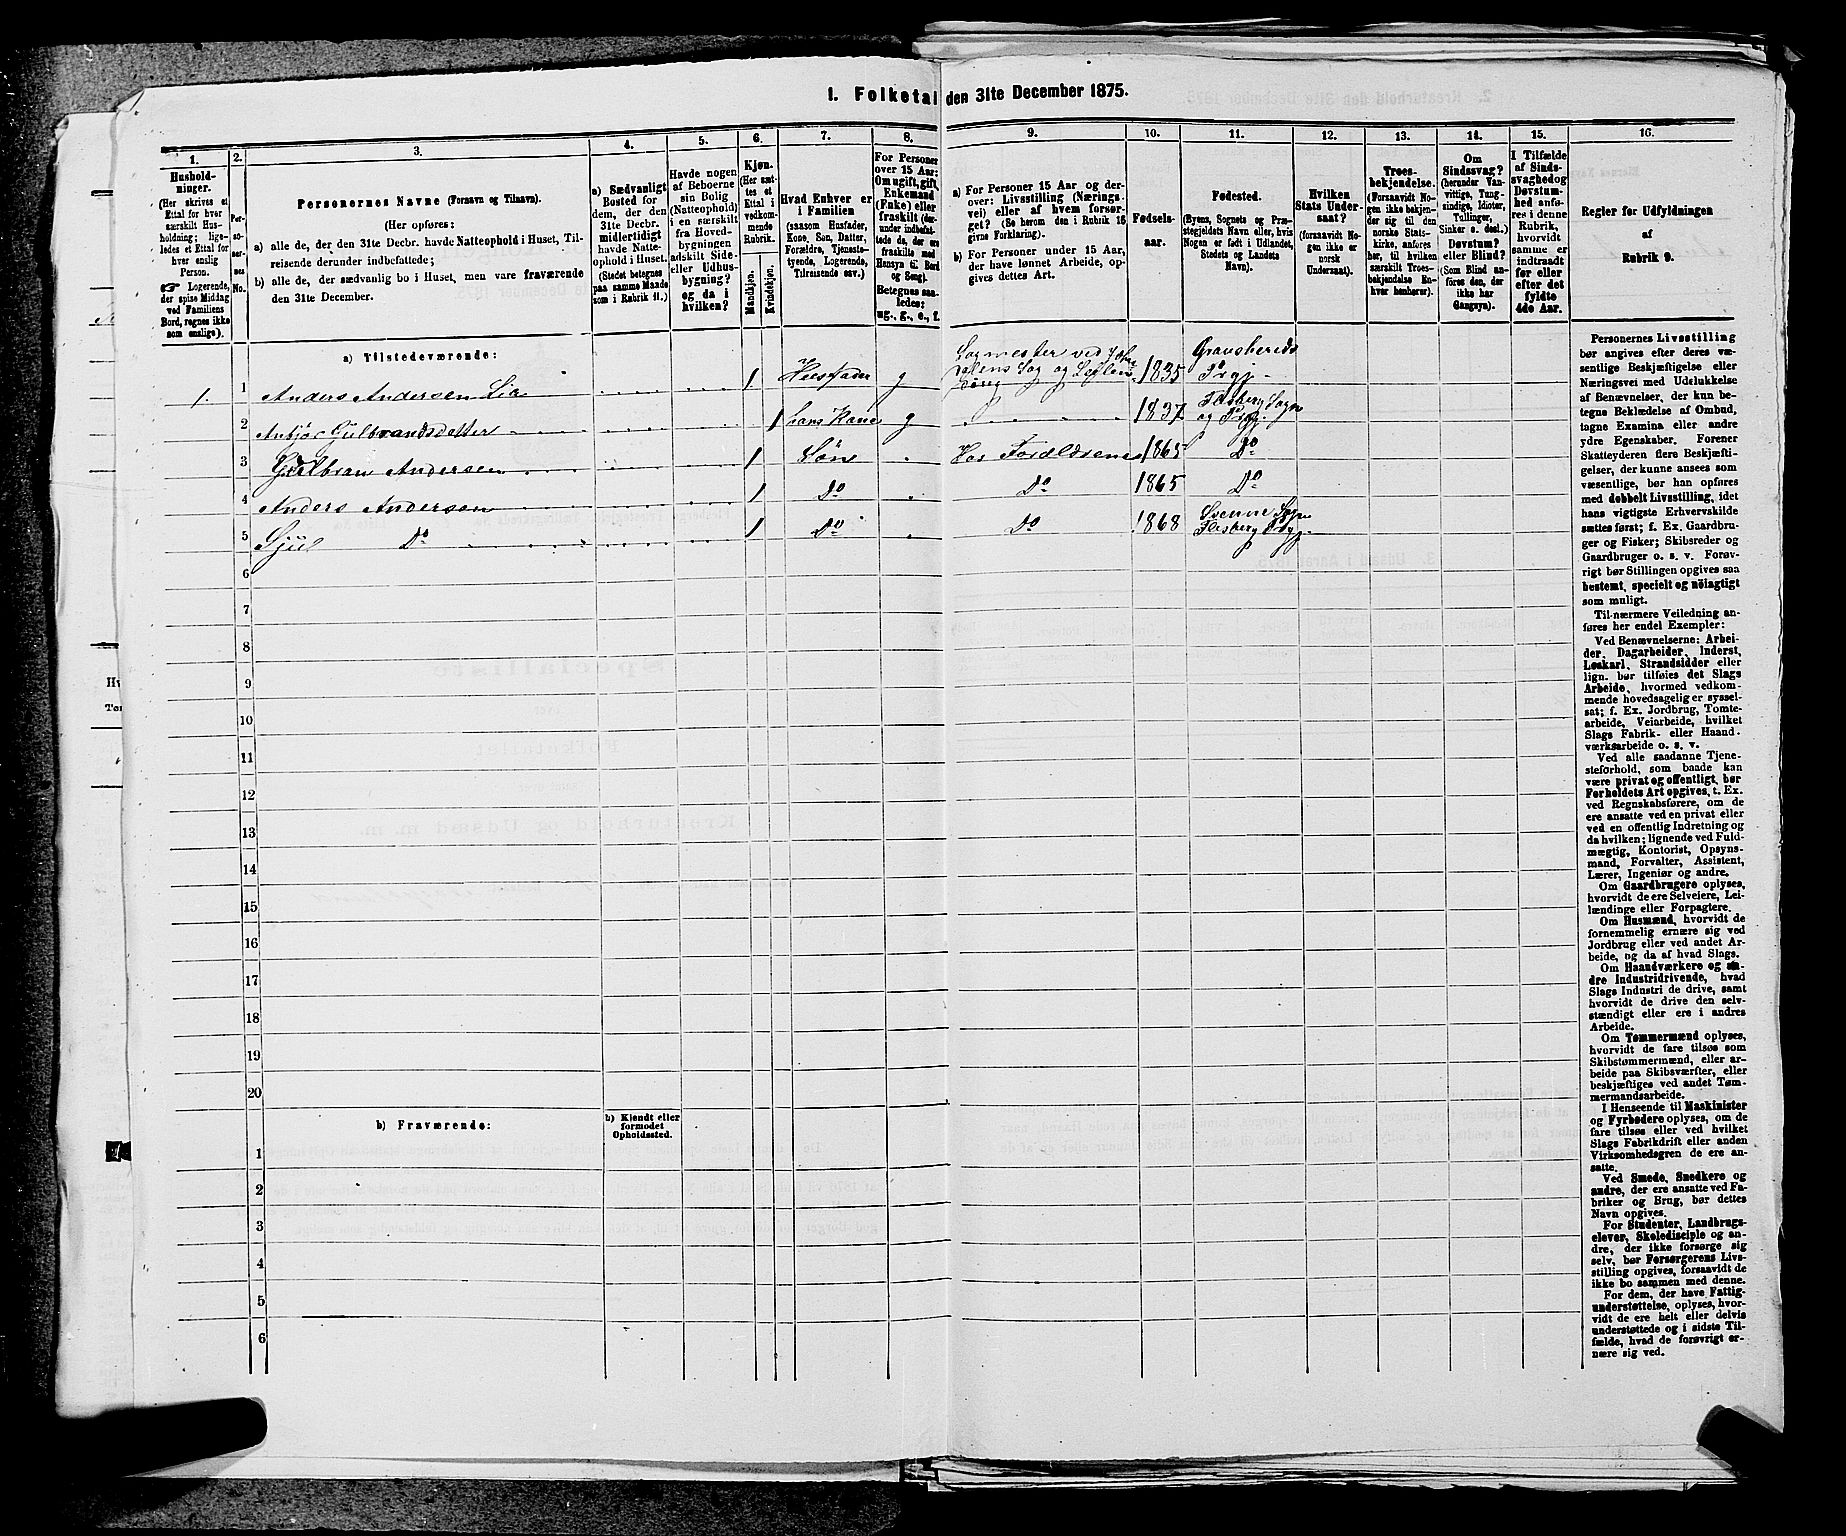 1. Folketal den 31te December 1875.
1.
2.
3.
4.
5.
6.
7.
8.
9.
10.
11.
12.
13.
14.
15.
16.
Hushold-
ninger.
(Her skrives et
Ettal for hver
særskilt Hus-
holdning; lige-
ledes et Ettal for
hver enslig
Person.
☞ Logerende,
der spise Middag
ved Familiens
Bord, regnes ikke
som enslige).
Per-
so-
ner-
nes
No.
Personernes Navne (Fornavn og Tilnavn).
(Her opføres:
a) alle de, der den 31te Decbr. havde Natteophold i Huset, Til-
reisende derunder indbefattede;
b) alle de, der sædvanlig bo i Huset, men vare fraværende
den 31te December.
a) Sædvanligt
Bosted for
dem, der den
31te Decbr.
midlertidigt
havde Natte-
ophold i Huset.
(Stedet betegnes
paa samme Maade
som i Rubrik 11.)
Havde nogen
af Beboerne
sin Bolig
(Natteophold)
i en særskilt
fra Hoved-
bygningen
adskilt Side-
eller Udhus-
bygning?
og da i
hvilken?
Kjøn.
(Her sæt-
tes et
Ettal i
vedkom-
mende
Rubrik.
Mandkjøn.
Kvindekjøn.
Hvad Enhver er
i Familien
(saasom Husfader,
Kone, Søn, Datter,
Forældre, Tjeneste-
tyende, Logerende,
Tilreisende osv.)
For Personer
over 15 Aar:
Om ugift, gift,
Enkemand
(Enke) eller
fraskilt (der-
under indbefat-
tede de, der ere
fraskilte med
Hensyn til Bord
og Seng).
Betegnes saa-
ledes:
ug., g., e., f.
a) For Personer 15 Aar og der-
over: Livsstilling (Nærings-
vei) eller af hvem forsør-
get? (Se herom den i Rubrik 16
givne Forklaring).
b) For Personer under 15 Aar,
der have lønnet Arbeide, op-
gives dettes Art.
Fødsels-
aar.
Fødested.
(Byens, Sognets og Præ-
stegjeldets Navn eller, hvis
Nogen er født i Udlandet,
Stedets og Landets
Navn).
Hvilken
Stats Under-
saat?
(foraavidt No-
gen ikke er
norsk
Undersaat).
Troes-
bekjendelse.
(Forsaavidt No-
gen ikke bekjen-
der sig til den
norske Stats-
kirke, anføres
her, til hvilken
særskilt Troes-
bekjendelse En-
hver henhører).
Om
Sindssvag?
(herunder Van-
vittige, Tung-
sindige, Idioter,
Tullinger,
Sinker o. desl.)
Døvstum?
eller Blind?
(Som Blind an-
føres den, der
ikke har
Gangsyn).
I Tilfælde
af Sinds-
svaghed og
Døvstum-
hed anfø-
res i denne
Rubrik,
hvorvidt
samme er
indtraadt
før eller
efter det
fyldte
4de Aar.
Regler for Udfyldningen
af
Rubrik 9.
a) Tilstedeværende:
1. 1 Anders Andersen Lia 1 Huusfader g Sagmester ved 1835 Granshereds Prgj.
2 Anbjør Gulbrandsdetter 1 hans Kone g 1837 Flesberg Sogn og Prgj.
3 Gulbran Andersen 1 Søn Hos Forældrene 1865 Do
4 Anders Andersen 1 Do Do 1865 Do
5 Sjul Do 1 Do Do 1868 Svenne Sogn Flesberg Prgj.
6
7
8
9
10
11
12
13
14
15
16
17
18
19
20
b) Fraværende:
b) Kjendt eller
formodet
Opholdssted.
1
2
3
4
5
6
Personernes Livsstilling
bør angives efter deres væ-
sentlige Beskjæftigelse eller
Næringsvei med Udelukkelse
af Benævnelser, der kun be-
tegne Beklædelse af Ombud,
tagne Examina eller andre
ydre Egenskaber. Forener
Skatteyderen flere Beskjæfti-
gelser, der kunne ansees som
væsentlige, bør han opføres
med dobbelt Livsstilling, idet
hans vigtigste Erhvervskilde
sættes først; f. Ex. Gaardbru-
ger og Fisker; Skibsreder og
Gaardbruger o. s. v. Forøv-
rigt bør Stillingen opgives saa
bestemt, specielt og nöiagtigt
som muligt.
Til nærmere Veiledning an-
føres her endel Exempler:
Ved Benævnelserne: Arbei-
der, Dagarbeider, Inderst,
Løskarl, Strandsidder eller
lign. bør tilføies det Slags
Arbeide, hvormed vedkom-
mende hovedsagelig er syssel-
sat; f. Ex. Jordbrug, Tomte-
arbeide, Veiarbeide, hvilket
Slags Fabrik- eller Haand-
værksarbeide o. s. v.
Ved alle saadanne Tjene-
steforhold, som baade kan
være privat og offentligt, bør
Forholdets Art opgives, t. Ex.
ved Regnskabsførere, om de
ere ansatte ved en privat eller
ved en offentlig Indretning og
da hvilken; lignende ved Fuld-
mægtig, Kontorist, Opsyns-
mand, Forvalter, Assistent,
Lærer, Ingeniør og andre.
Om Gaardbrugere oplyses,
hvorvidt de ere Selveiere, Lei-
lændinge eller Forpagtere.
Om Husmænd, hvorvidt de
fornemmelig ernære sig ved
Jordbrug eller ved andet Ar-
beide, og da af hvad Slags.
Om Haandværkere og an-
dre Industridrivende, hvad
Slags Industri de drive, samt
hvorvidt de drive den selv-
stændigt eller ere i andres
Arbeide.
Om Tømmermænd oplyses,
hvorvidt de fare tilsøs som
Skibstømmermænd, eller ar-
beide paa Skibsværfter, eller
beskjæftiges ved andet Tøm-
mermandsarbeide.
I Henseende til Maskinister
og Fyrbødere oplyses, om de
fare tilsøs eller ved hvilket
Slags Fabrikdrift eller anden
Virksomhedsgren de ere an-
satte.
Ved Smede, Snedkere og
andre, der ere ansatte ved Fa-
briker og Brug, bør dettes
Navn opgives.
For Studenter, Landbrugs-
elever, Skoledisciple og an-
dre, der ikke forsørge sig
selv, bør Forsørgerens Livs-
stilling opgives, forsaavidt de
ikke bo sammen med denne.
For dem, der have Fattig-
understøttelse, oplyses, hvor-
vidt de ere helt eller delvis
understøttede og i sidste Til-
fælde, hvad de forøvrigt er-
nære sig ved.